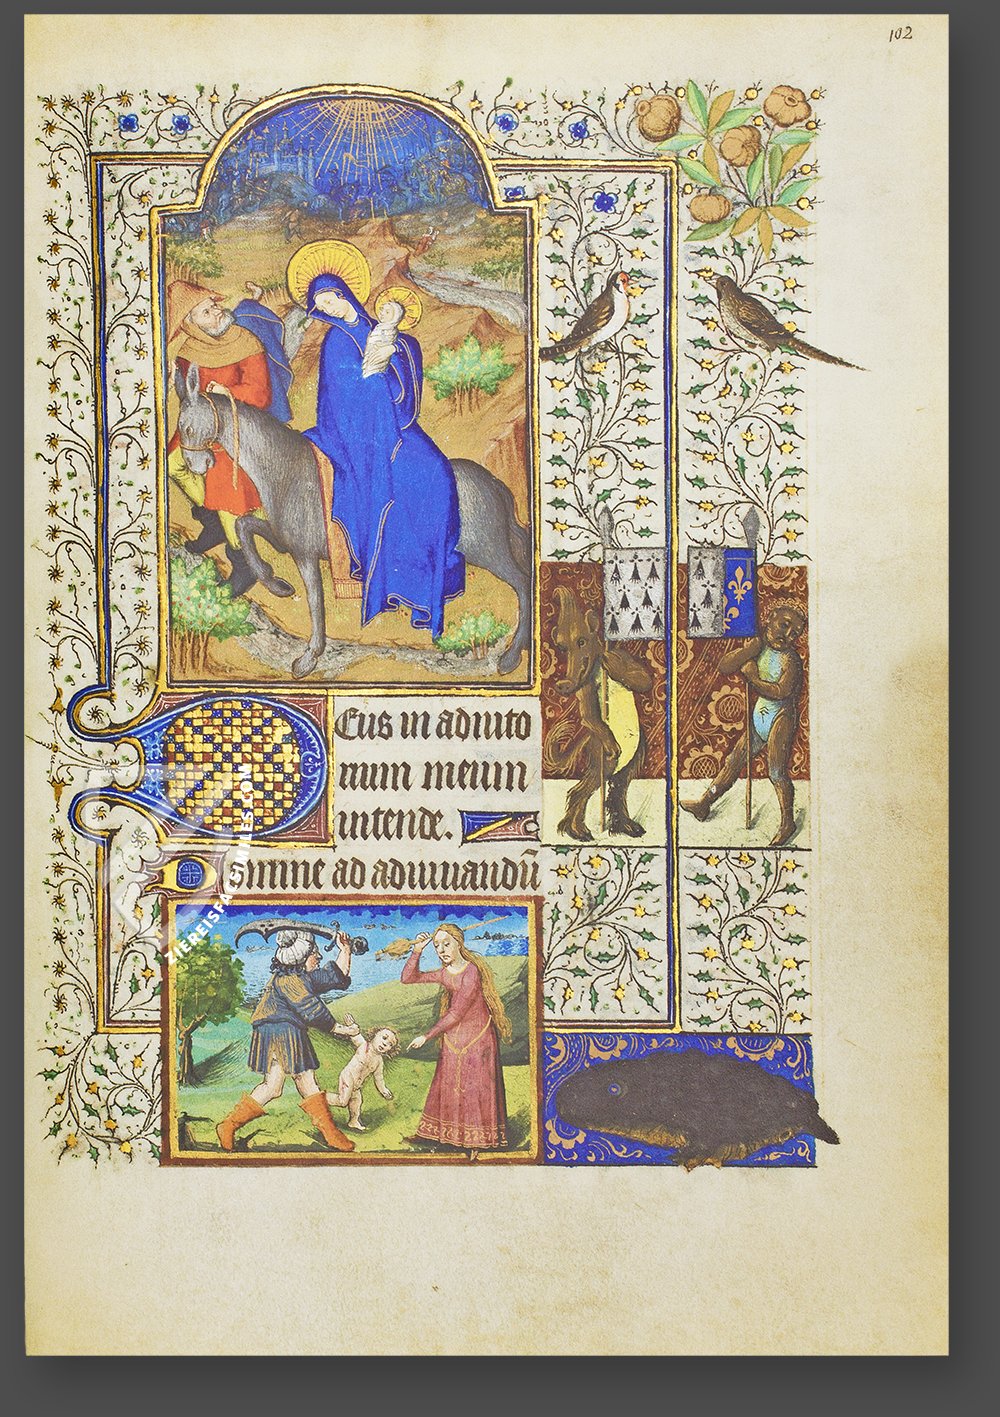 102
Eus in adiuto
rium meum
intende.
Domine ad adiuuandū
ZIEREISFACSIMILES.COM